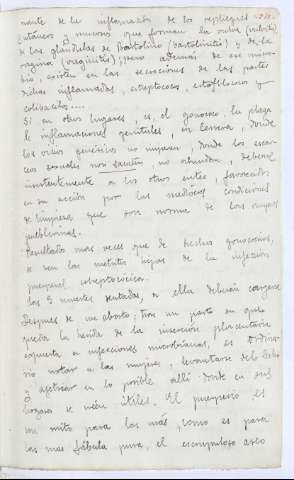 nante de la inflamación de los repliegues
cutáneos y mucosos que forman la vulva (vulvitis)
de las glándulas de Bartolino (bartolinitis) y de la
vagina (vaginitis); pero además de ese micro-
bio, existen en las secreciones de las partes
dichas inflamadas, estreptococos, estafilococos y
colibacilos....
Si en otros lugares, es, el gonococo, la plaga
de inflamaciones genitales, en Cervera, donde
los vicios genésicos no imperan, donde los escar-
ceos sexuales non sanctus, no abundan, deberá
a los otros entes, favorecidos
en su acción por las mediocres condiciones
de limpieza que son norma de las mujeres
pueblerinas.
Resultado más veces que de hechos gonocócicos,
o son las metritis hijas de la infección
puerperal, estreptocócica.
Las 5 muertes sentadas, a ella deberán cargarse
Después de un aborto; tras un parto en que
queda la herida de la inserción placentaria
expuesta a infecciones microbianas, es ordina-
rio notar a las mujeres, levantarse del lecho
o ajetrear en lo posible allí donde en sus
hogares se vieren útiles. El puerperio es
un mito para las más, como es para
las mas fábula pura, el escrupuloso aseo